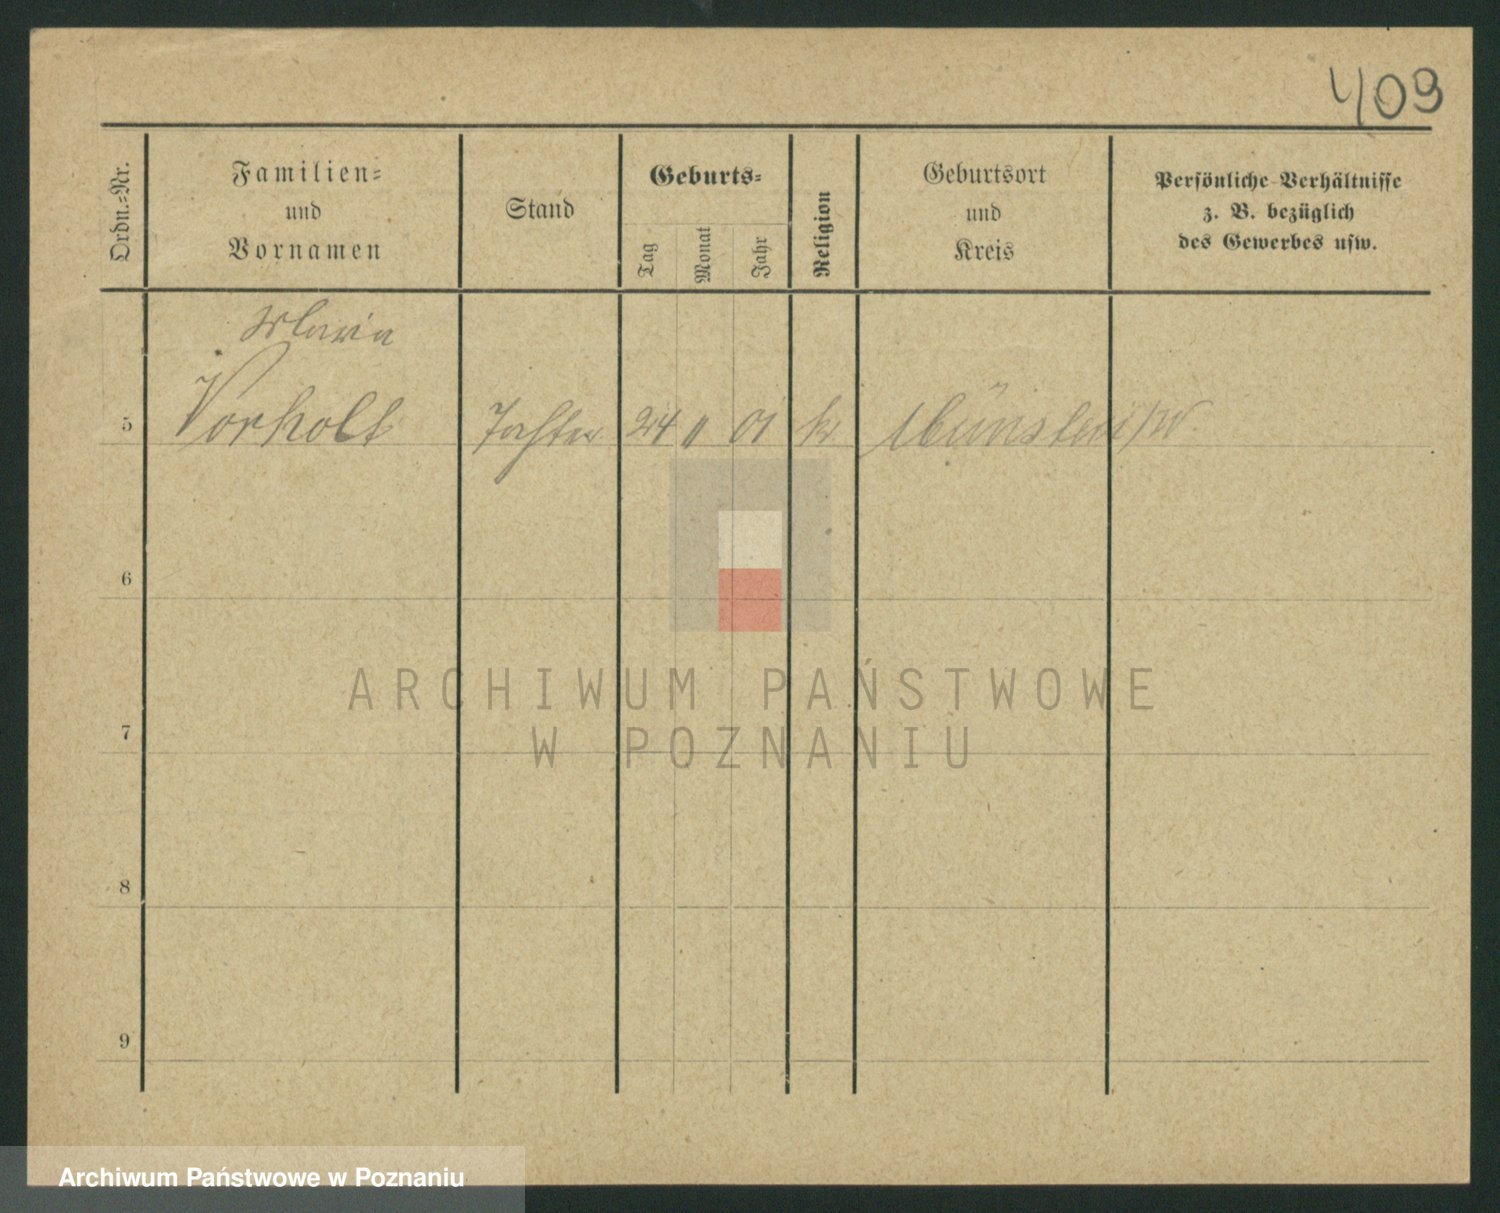 409
Ordn.-Nr.
Familien-
und
Vornamen
Stand
Geburts-
Tag
Monat
Jahr
Religion
Geburtsort
und
Kreis
Persönliche Verhältnisse
z. B. bezüglich
des Gewerbes usw.
Maria
5 Vorholt Tochter 24 11 01 k Münster i/W.
6
7
8
9
ARCHIWUM PAŃSTWOWE
W POZNANIU
Archiwum Państwowe w Poznaniu